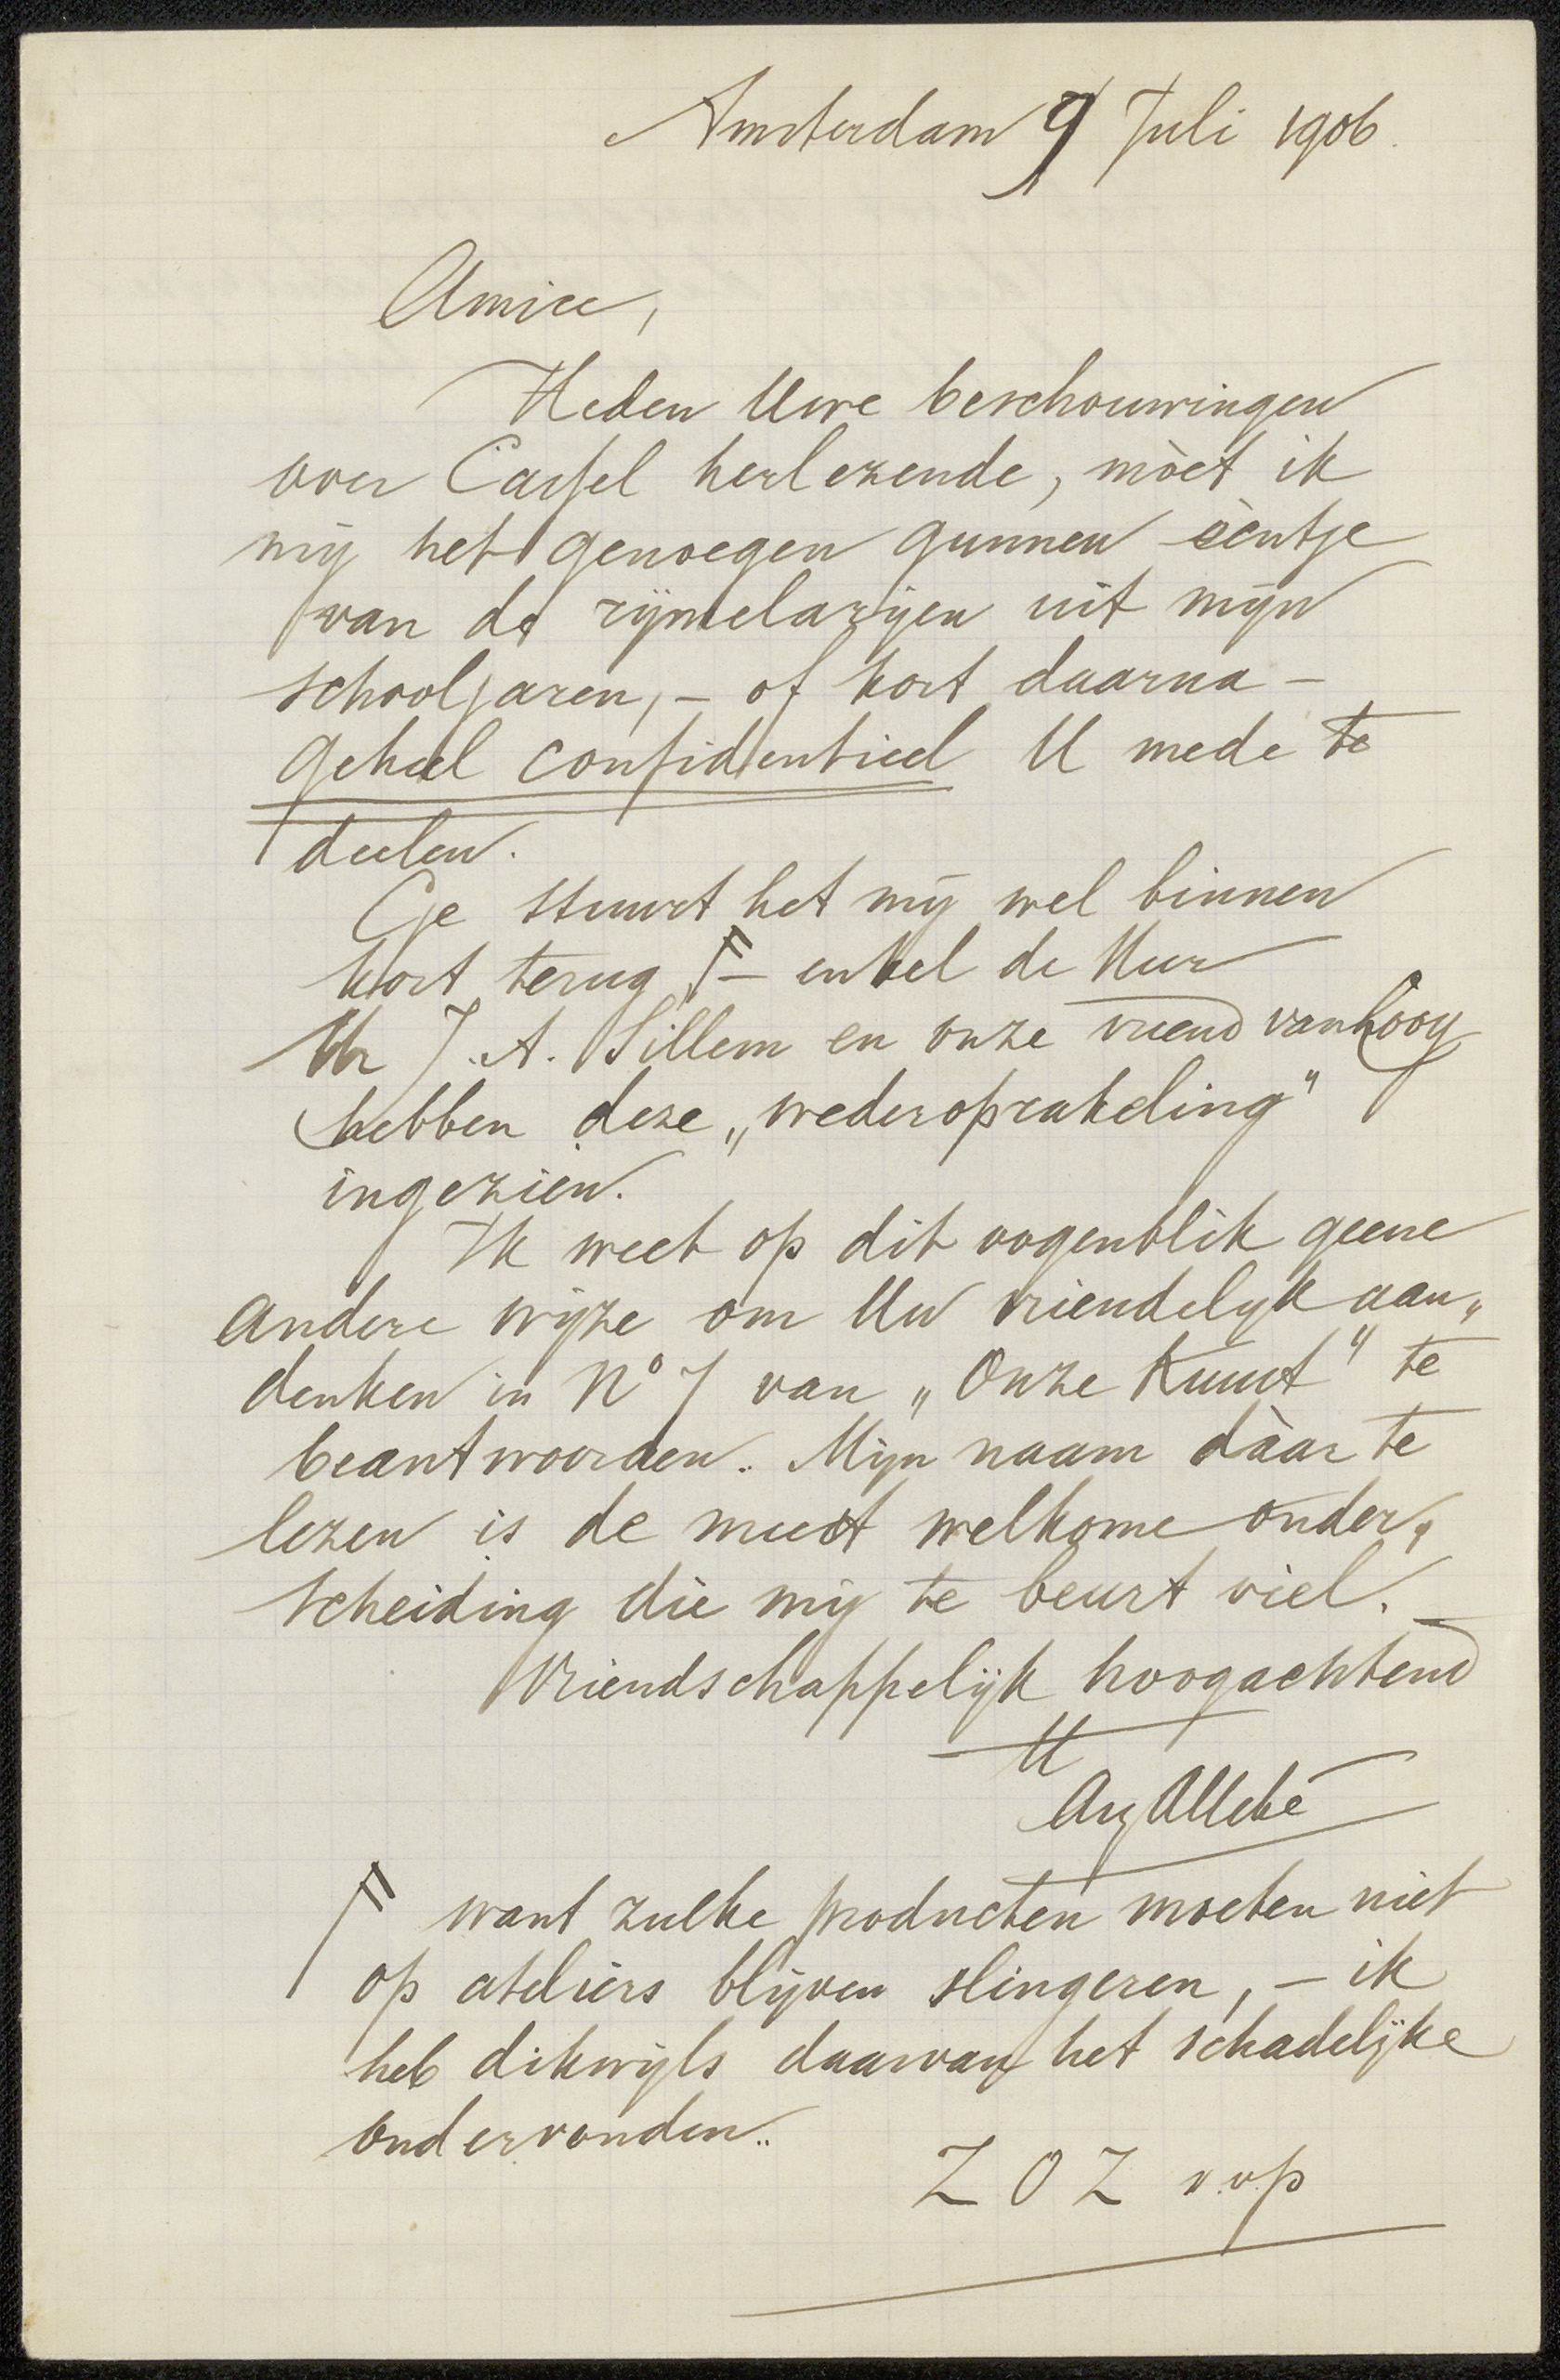 Amsterdam 9 Juli 1906.
Amice,
Heden Uwe beschouwingen
over Cassel herlezende, mòet ik
mij het genoegen gunnen èèntje
van de rijmelarijen uit mijn
schooljaren, – of kort daarna –
geheel confidentieel U mede te
deelen.
Ge stuurt het mij wel binnen
kort terug, F – enkel de Heer
Mr J. A. Sillem en onze vriend van Looy
hebben deze „wederoprakeling"
ingezien.
Ik weet op dit oogenblik geene
andere wijze om Uw vriendelijk aan„
denken in No 7 van „Onze Kunst" te
beantwoorden. Mijn naam dàar te
lezen is de meest welkome onder„
scheiding die mij te beurt viel.
Vriendschappelijk hoogachtend
U
Aug Allebé
F want zulke producten moeten niet
op ateliers blijven slingeren, – ik
heb dikwijls daarvan het schadelijke
ondervonden..
Z O Z